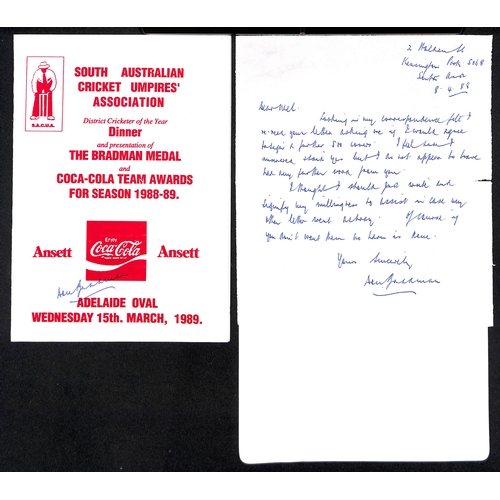 S.A.C.U.A.
SOUTH AUSTRALIAN
CRICKET UMPIRES'
ASSOCIATION
District Cricketer of the Year
Dinner
and presentation of
THE BRADMAN MEDAL
and
COCA-COLA TEAM AWARDS
FOR SEASON 1988-89.
Ansett
Enjoy
Coca-Cola
Ansett
Don Bradman
ADELAIDE OVAL
WEDNESDAY 15th. MARCH, 1989.
2 Holden St
Kensington Park 5068
South Aust
8.4.88
Dear Mel.
Looking in my correspondence file I
re-read your letter asking me if I would agree
to sign a further 500 covers. I feel sure I
answered about yes but I do not appear to have
had any further word from you.
I thought I should just write and
signify my willingness to assist in case my
other letter went astray. Of course if
you don't want them no harm is done.
Yours Sincerely
Don Bradman